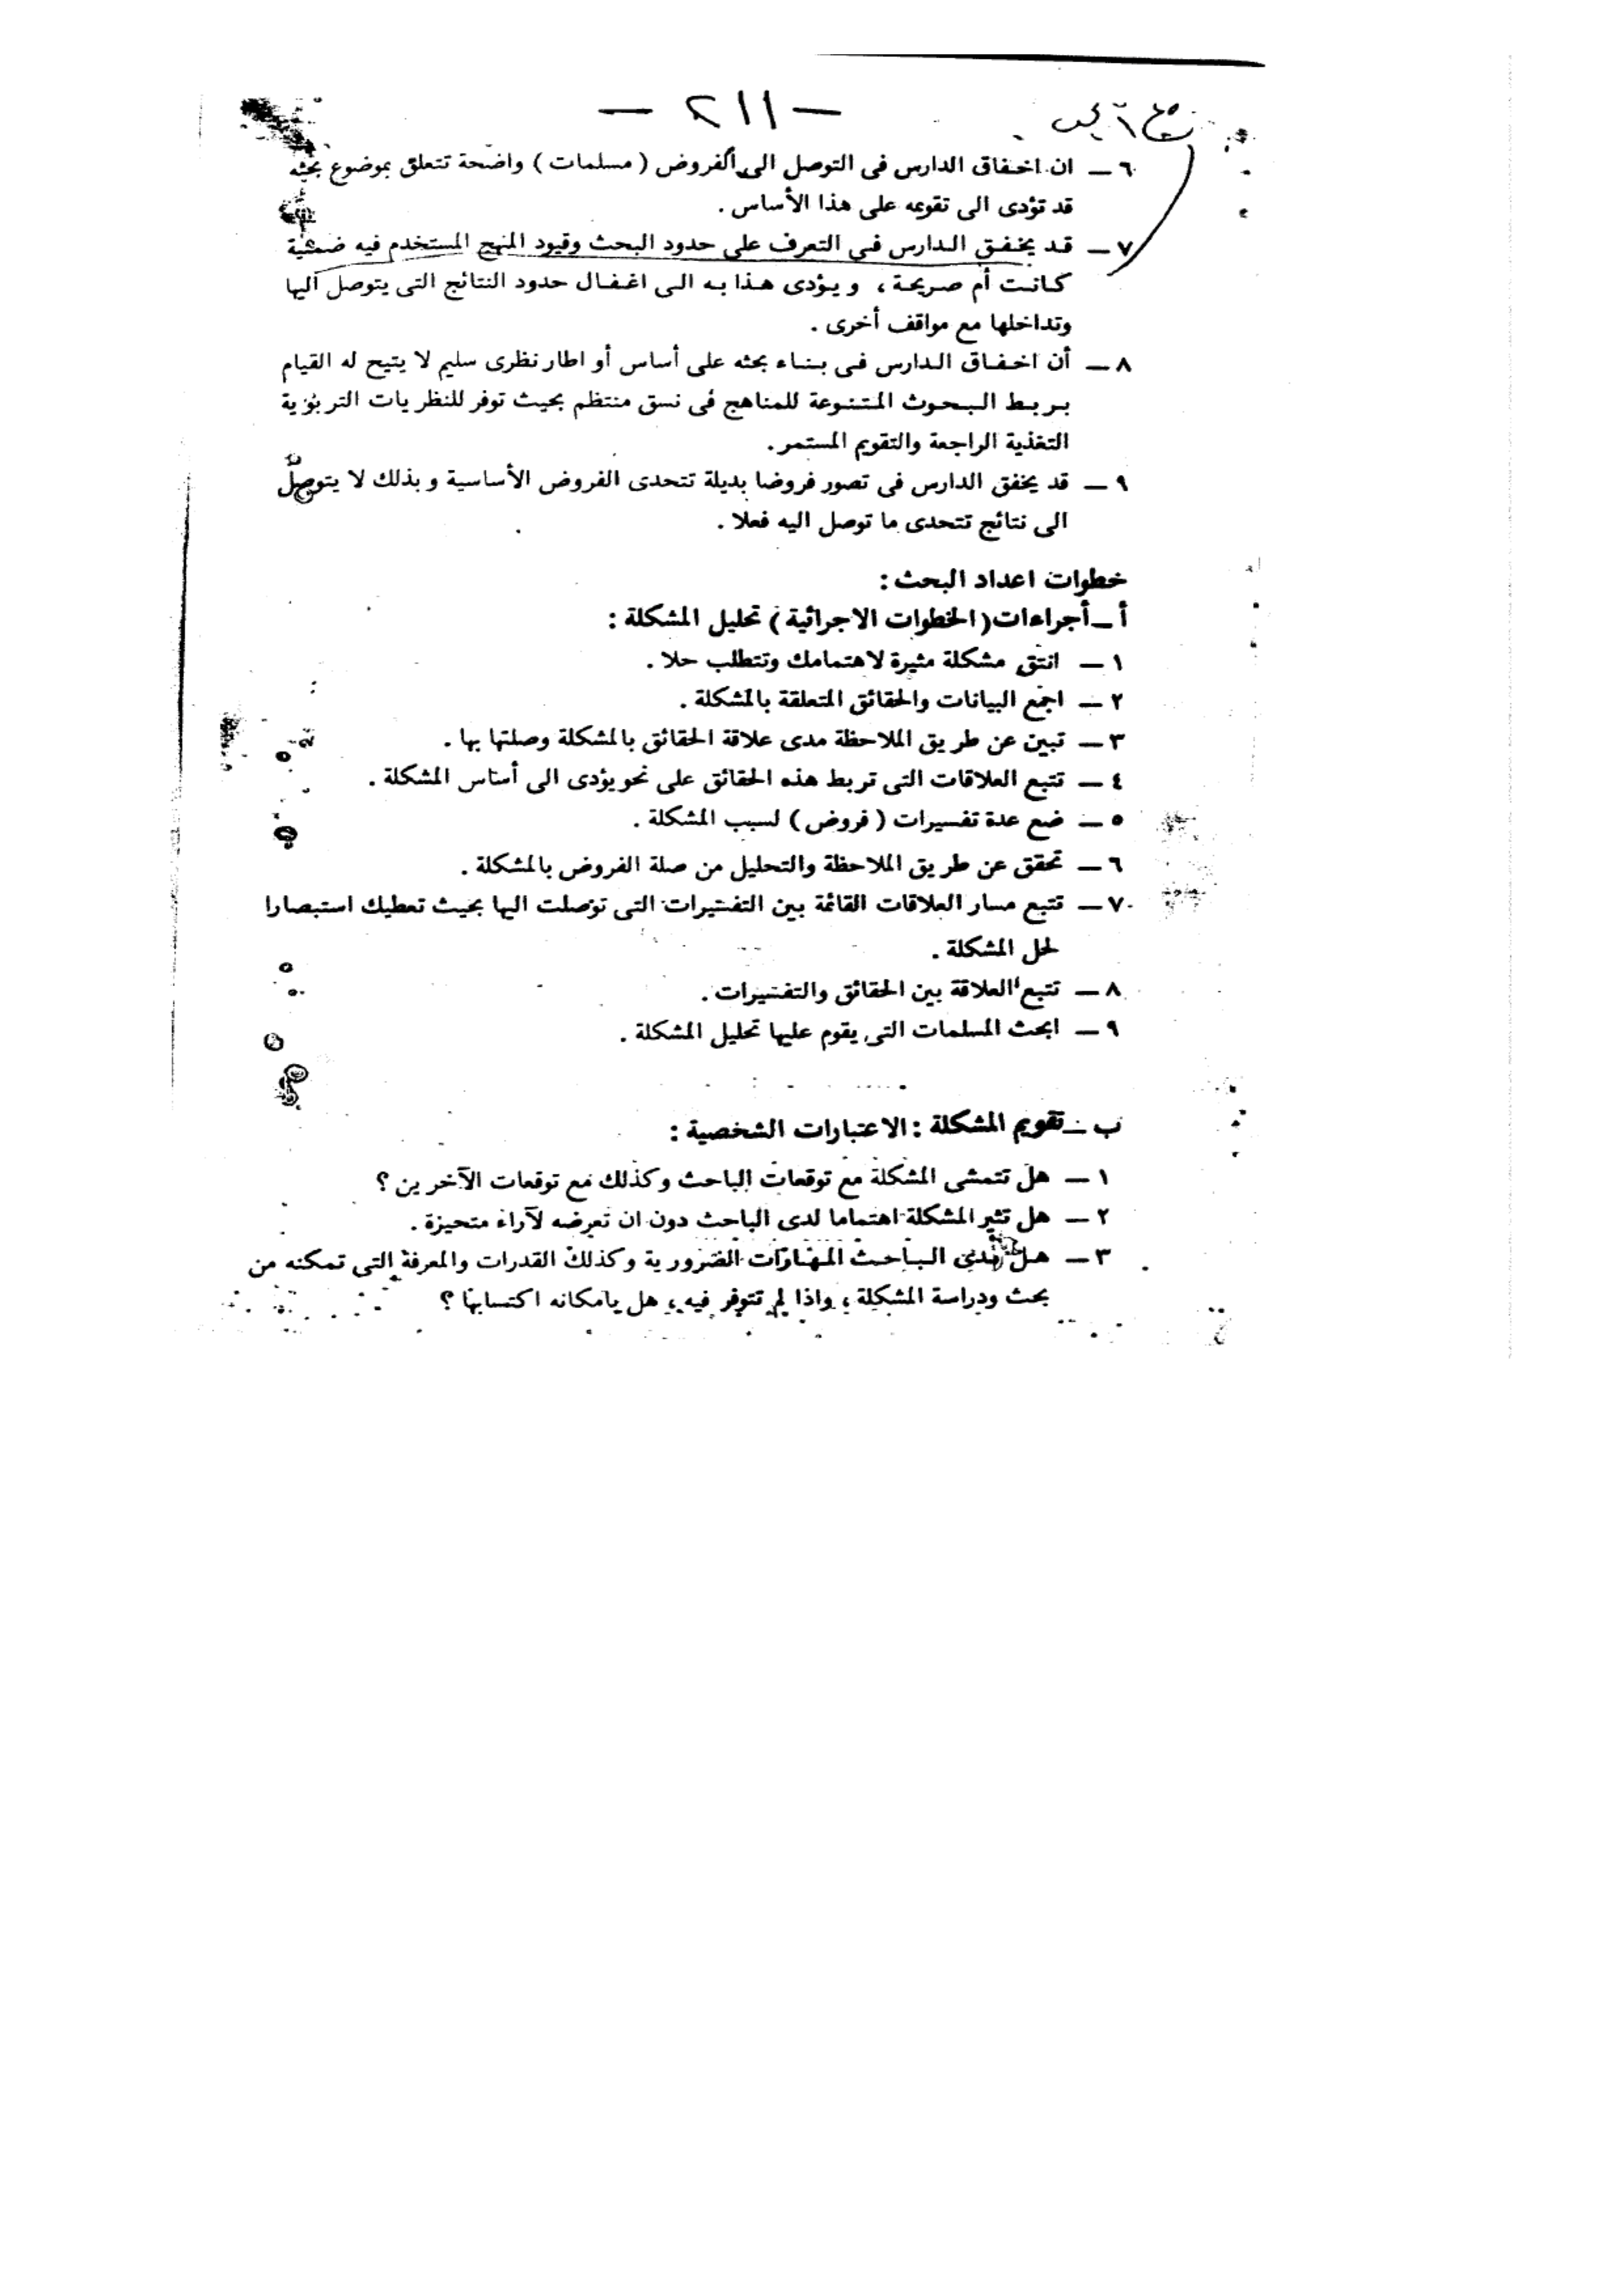 — ٢١١ —
٦ — ان اخفاق الدارس فى التوصل الى الفروض ( مسلمات ) واضحة تتعلق بموضوع بحثه
قد تؤدى الى تقويمه على هذا الأساس .
٧ — قد يخفق الدارس فى التعرف على حدود البحث وقيود المنهج المستخدم فيه ضمنية
كانت أم صريحة ، ويؤدى هذا به الى اغفال حدود النتائج التى يتوصل اليها
وتداخلها مع مواقف أخرى .
٨ — أن اخفاق الدارس فى بناء بحثه على أساس أو اطار نظرى سليم لا يتيح له القيام
بربط البحوث المتنوعة للمناهج فى نسق منتظم بحيث توفر للنظريات التربوية
التغذية الراجعة والتقويم المستمر.
٩ — قد يخفق الدارس فى تصور فروضا بديلة تتحدى الفروض الأساسية وبذلك لا يتوصل
الى نتائج تتحدى ما توصل اليه فعلا .
خطوات اعداد البحث :
أ — أجراءات ( الخطوات الاجرائية ) تحليل المشكلة :
١ — انتق مشكلة مثيرة لاهتمامك وتتطلب حلا .
٢ — اجمع البيانات والحقائق المتعلقة بالمشكلة .
٣ — تبين عن طريق الملاحظة مدى علاقة الحقائق بالمشكلة وصلتها بها .
٤ — تتبع العلاقات التى تربط هذه الحقائق على نحو يؤدى الى أساس المشكلة .
٥ — ضع عدة تفسيرات ( فروض ) لسبب المشكلة .
٦ — تحقق عن طريق الملاحظة والتحليل من صلة الفروض بالمشكلة .
٧ — تتبع مسار العلاقات القائمة بين التفسيرات التى توصلت اليها بحيث تعطيك استبصارا
لحل المشكلة .
٨ — تتبع العلاقة بين الحقائق والتفسيرات .
٩ — ابحث المسلمات التى يقوم عليها تحليل المشكلة .
ب — تقويم المشكلة : الاعتبارات الشخصية :
١ — هل تتمشى المشكلة مع توقعات الباحث وكذلك مع توقعات الآخرين ؟
٢ — هل تثير المشكلة اهتماما لدى الباحث دون ان تعرضه لآراء متحيزة .
٣ — هل لدى الباحث المهارات الضرورية وكذلك القدرات والمعرفة التى تمكنه من
بحث ودراسة المشكلة ، واذا لم تتوفر فيه ، هل بامكانه اكتسابها ؟